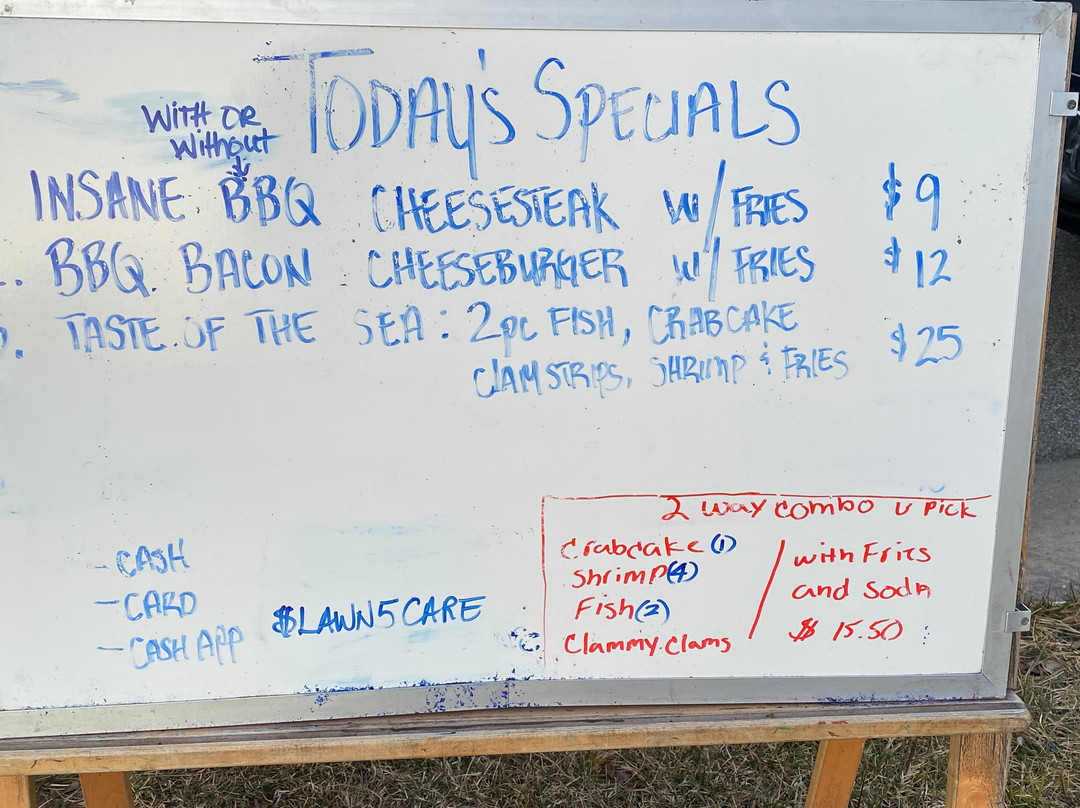 TODAY'S SPECIALS
WITH OR
Without
INSANE BBQ CHEESESTEAK W/ FRIES $9
. BBQ BACON CHEESEBURGER W/ FRIES $12
. TASTE OF THE SEA: 2pc FISH, CRABCAKE $25
CLAM STRIPS, SHRIMP & FRIES
2 way combo U Pick
Crabcake (1)
Shrimp (4)
Fish (2)
Clammy.Clams
with Fries
and Soda
$ 15.50
- CASH
- CARD
- CASH APP $LAWN5CARE